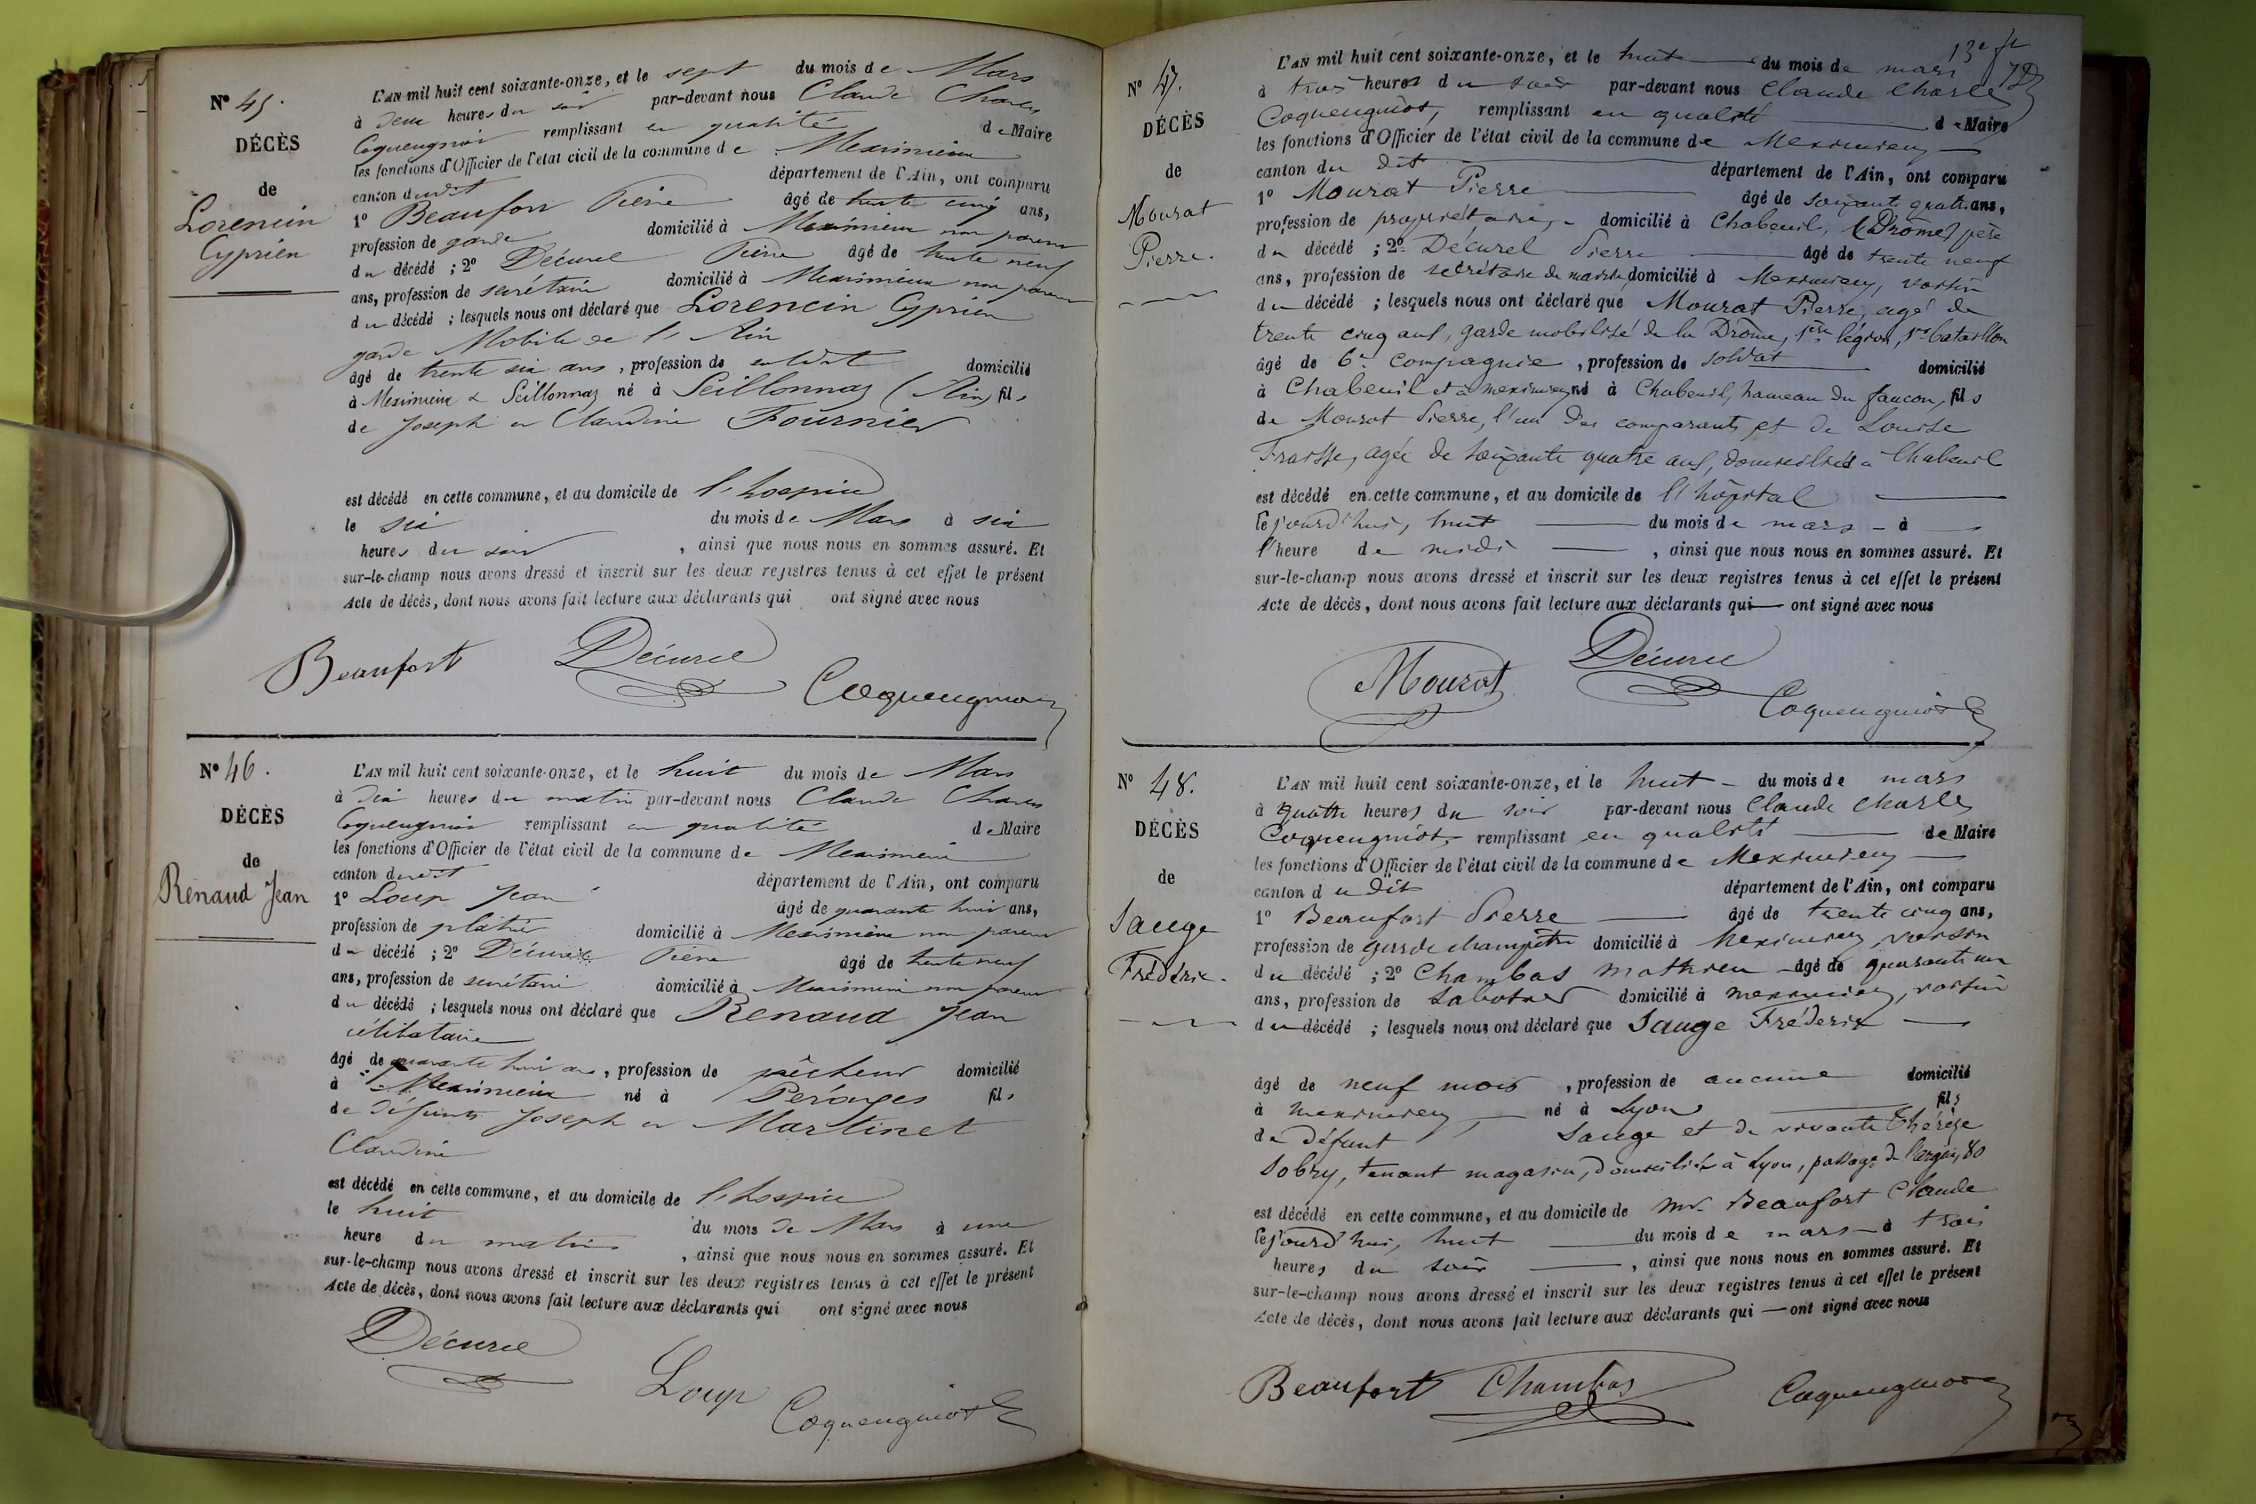 N° 45.
DÉCÈS
de
Lorencin
Cyprien
L'AN mil huit cent soixante-onze, et le sept du mois de Mars
à deux heures du soir par-devant nous Claude Charles
Coquengniot remplissant en qualité de Maire
les fonctions d'Officier de l'état civil de la commune de Meximieux
canton dudit département de l'Ain, ont comparu
1° Beaufort Pierre âgé de trente cinq ans,
profession de garde domicilié à Meximieux non parent
du décédé ; 2° Décurel Pierre âgé de trente neuf
ans, profession de secrétaire domicilié à Meximieux non parent
du décédé ; lesquels nous ont déclaré que Lorencin Cyprien
garde Mobile de l'Ain
âgé de trente six ans, profession de soldat domicilié
à Meximieux & Seillonnaz né à Seillonnaz (Ain) fils
de Joseph et Claudine Fournier
est décédé en cette commune, et au domicile de l'hospice
le six du mois de Mars à six
heures du soir, ainsi que nous nous en sommes assuré. Et
sur-le-champ nous avons dressé et inscrit sur les deux registres tenus à cet effet le présent
Acte de décès, dont nous avons fait lecture aux déclarants qui ont signé avec nous
Beaufort Décurel
Coquengniot
N° 46.
DÉCÈS
de
Renaud Jean
L'AN mil huit cent soixante-onze, et le huit du mois de Mars
à dix heures du matin par-devant nous Claude Charles
Coquengniot remplissant en qualité de Maire
les fonctions d'Officier de l'état civil de la commune de Meximieux
canton dudit département de l'Ain, ont comparu
1° Loup Jean âgé de quarante huit ans,
profession de plâtrier domicilié à Meximieux non parent
du décédé ; 2° Décurel Pierre âgé de trente neuf
ans, profession de secrétaire domicilié à Meximieux non parent
du décédé ; lesquels nous ont déclaré que Renaud Jean
célibataire
âgé de quarante huit ans, profession de pêcheur domicilié
à Meximieux né à Pérouges fils
de défunts Joseph et Martinet
Claudine
est décédé en cette commune, et au domicile de l'hospice
le huit du mois de Mars à une
heure du matin, ainsi que nous nous en sommes assuré. Et
sur-le-champ nous avons dressé et inscrit sur les deux registres tenus à cet effet le présent
Acte de décès, dont nous avons fait lecture aux déclarants qui ont signé avec nous
Décurel
Loup
Coquengniot
13e ft
N° 47.
DÉCÈS
de
Mourat
Pierre.
L'AN mil huit cent soixante-onze, et le huit du mois de mars
à trois heures du soir par-devant nous Claude Charles
Coquengniot, remplissant en qualité de Maire
les fonctions d'Officier de l'état civil de la commune de Meximieux
canton du dit département de l'Ain, ont comparu
1° Mourat Pierre âgé de soixante quatre ans,
profession de propriétaire, domicilié à Chabeuil, (Drôme) père
du décédé ; 2° Décurel Pierre âgé de trente neuf
ans, profession de secrétaire de mairie, domicilié à Meximieux, voisin
du décédé ; lesquels nous ont déclaré que Mourat Pierre, agé de
trente cinq ans, garde mobilisé de la Drôme, 1ère légion, 1er bataillon
âgé de 6e compagnie, profession de soldat domicilié
à Chabeuil et à meximieux né à Chabeuil, hameau du faucon, fils
de Mourat Pierre, l'un des comparants, et de Louise
Fraisse, agée de soixante quatre ans, domiciliés à Chabeuil
est décédé en cette commune, et au domicile de l'hôpital
cejourd'hui, huit du mois de mars à
l'heure de midi, ainsi que nous nous en sommes assuré. Et
sur-le-champ nous avons dressé et inscrit sur les deux registres tenus à cet effet le présent
Acte de décès, dont nous avons fait lecture aux déclarants qui ont signé avec nous
Mourat Décurel
Coquengniot
N° 48.
DÉCÈS
de
Sauge
Fréderic.
L'AN mil huit cent soixante-onze, et le huit du mois de mars
à quatre heures du soir par-devant nous Claude Charles
Coquengniot, remplissant en qualité de Maire
les fonctions d'Officier de l'état civil de la commune de Meximieux
canton du dit département de l'Ain, ont comparu
1° Beaufort Pierre âgé de trente cinq ans,
profession de garde champêtre domicilié à Meximieux, voisin
du décédé ; 2° Chambas Mathieu âgé de quarante un
ans, profession de sabotier domicilié à meximieux, voisin
du décédé ; lesquels nous ont déclaré que Sauge Fréderic
âgé de neuf mois, profession de aucune domicilié
à meximieux né à Lyon fils
de défunt Sauge et de vivante Thérèse
Sobry, tenant magasin, domiciliée à Lyon, passage de l'argue, 80
est décédé en cette commune, et au domicile de Mr Beaufort Claude
cejourd'hui, huit du mois de mars à trois
heures du soir, ainsi que nous nous en sommes assuré. Et
sur-le-champ nous avons dressé et inscrit sur les deux registres tenus à cet effet le présent
Acte de décès, dont nous avons fait lecture aux déclarants qui ont signé avec nous
Beaufort Chambas Coquengniot